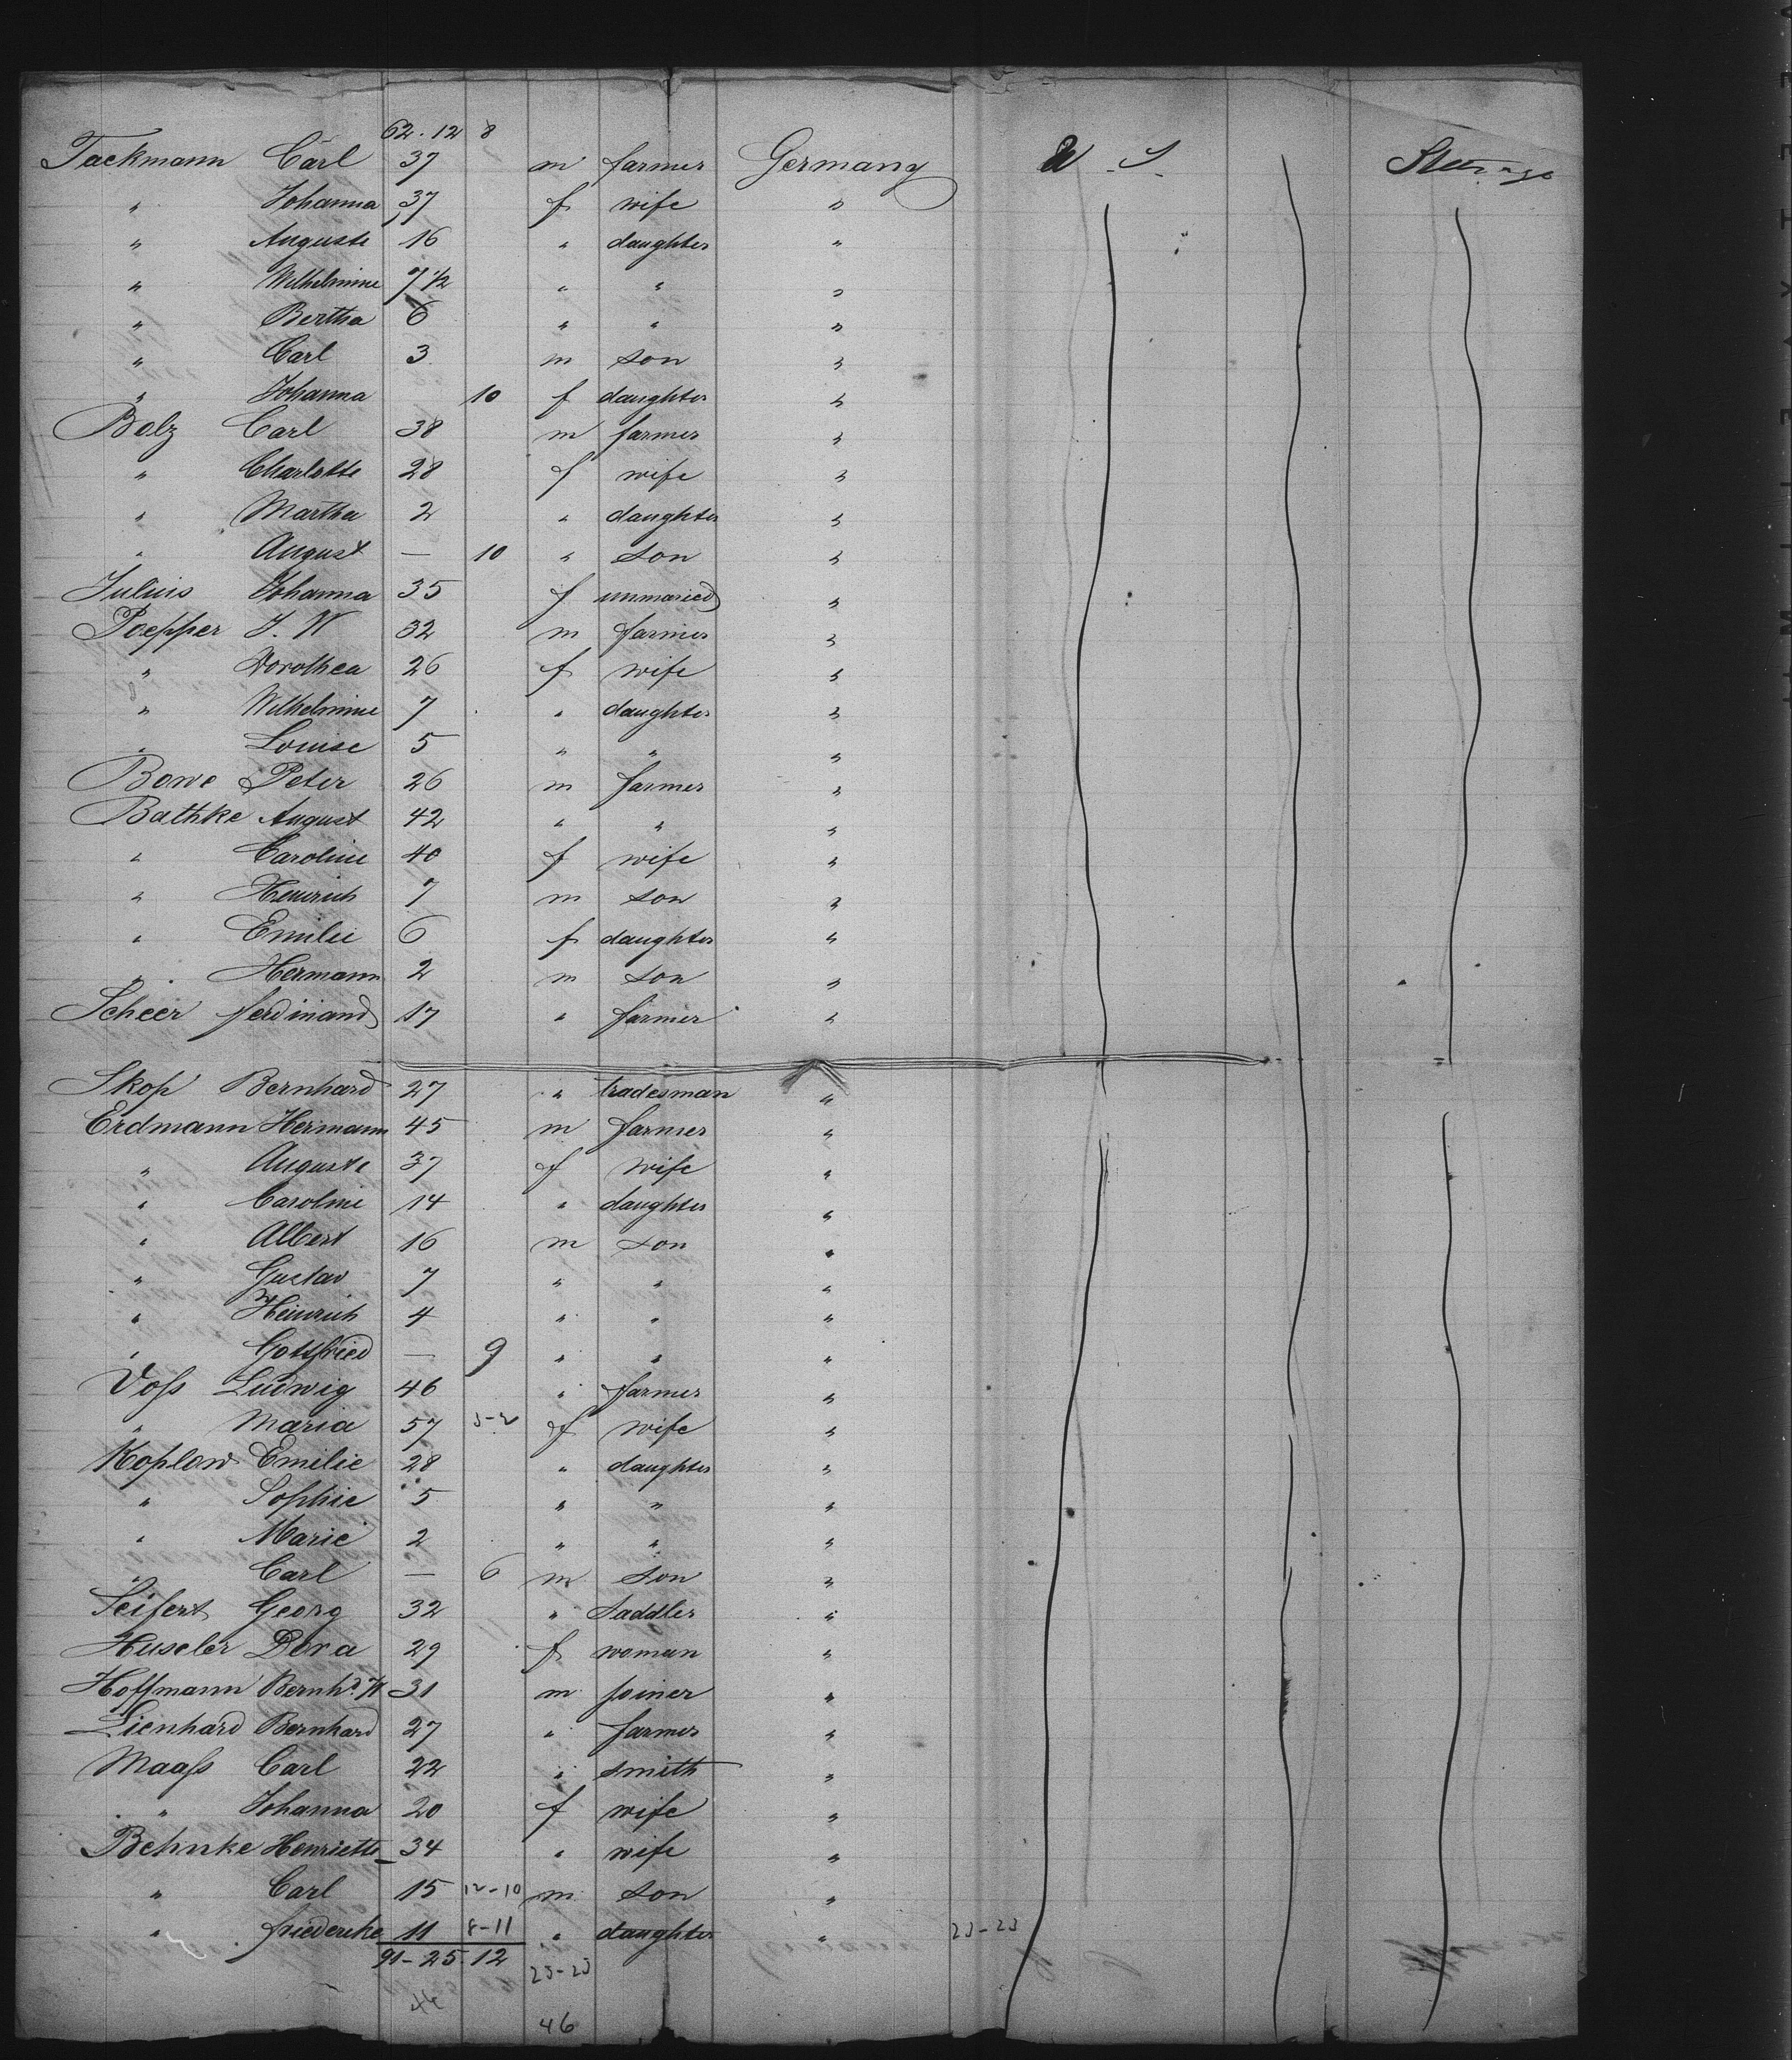 62. 12 8
Tackmann Carl 37 m farmer Germany U. S. Steerage
" Johanna 37 f wife "
" Auguste 16 " daughter "
" Wilhelmine 7 1/2 " " "
" Bertha 6 " " "
" Carl 3 m son "
" Johanna 10 f daughter "
Bolz Carl 38 m farmer "
" Charlotte 28 f wife "
" Martha 2 " daughter "
" August — 10 " son "
Julius Johanna 35 f unmaried "
Poepper J. W 32 m farmer "
" Dorothea 26 f wife "
" Wilhelmine 7 " daughter "
" Louise 5 " " "
Bowe Peter 26 m farmer "
Bathke August 42 " " "
" Caroline 40 f wife "
" Heinrich 7 m son "
" Emilie 6 f daughter "
" Hermann 2 m son "
Scheer ferdinand 17 " farmer "
Skop Bernhard 27 " tradesman "
Erdmann Hermann 45 m farmer "
" Auguste 37 f wife "
" Caroline 14 " daughter "
" Albert 16 m son "
" Gustav 7 " " "
" Heinrich 4 " " "
" Gottfried — 9 " " "
Voss Ludwig 46 " farmer "
" Maria 57 f wife "
Koplow Emilie 28 " daughter "
" Sophie 5 " " "
" Marie 2 " " "
" Carl — 6 m son "
Seifert Georg 32 " Saddler "
Huseler Dora 29 f woman "
Hoffmann Bernhd. W 31 m joiner "
Lienhard Bernhard 27 " farmer "
Maass Carl 22 " smith "
" Johanna 20 f wife "
Behnke Henriette 34 " wife "
" Carl 15 12-10 m son "
" friedericke 11 8-11 " daughter " 23-23
91-25.12 23-23
46
46